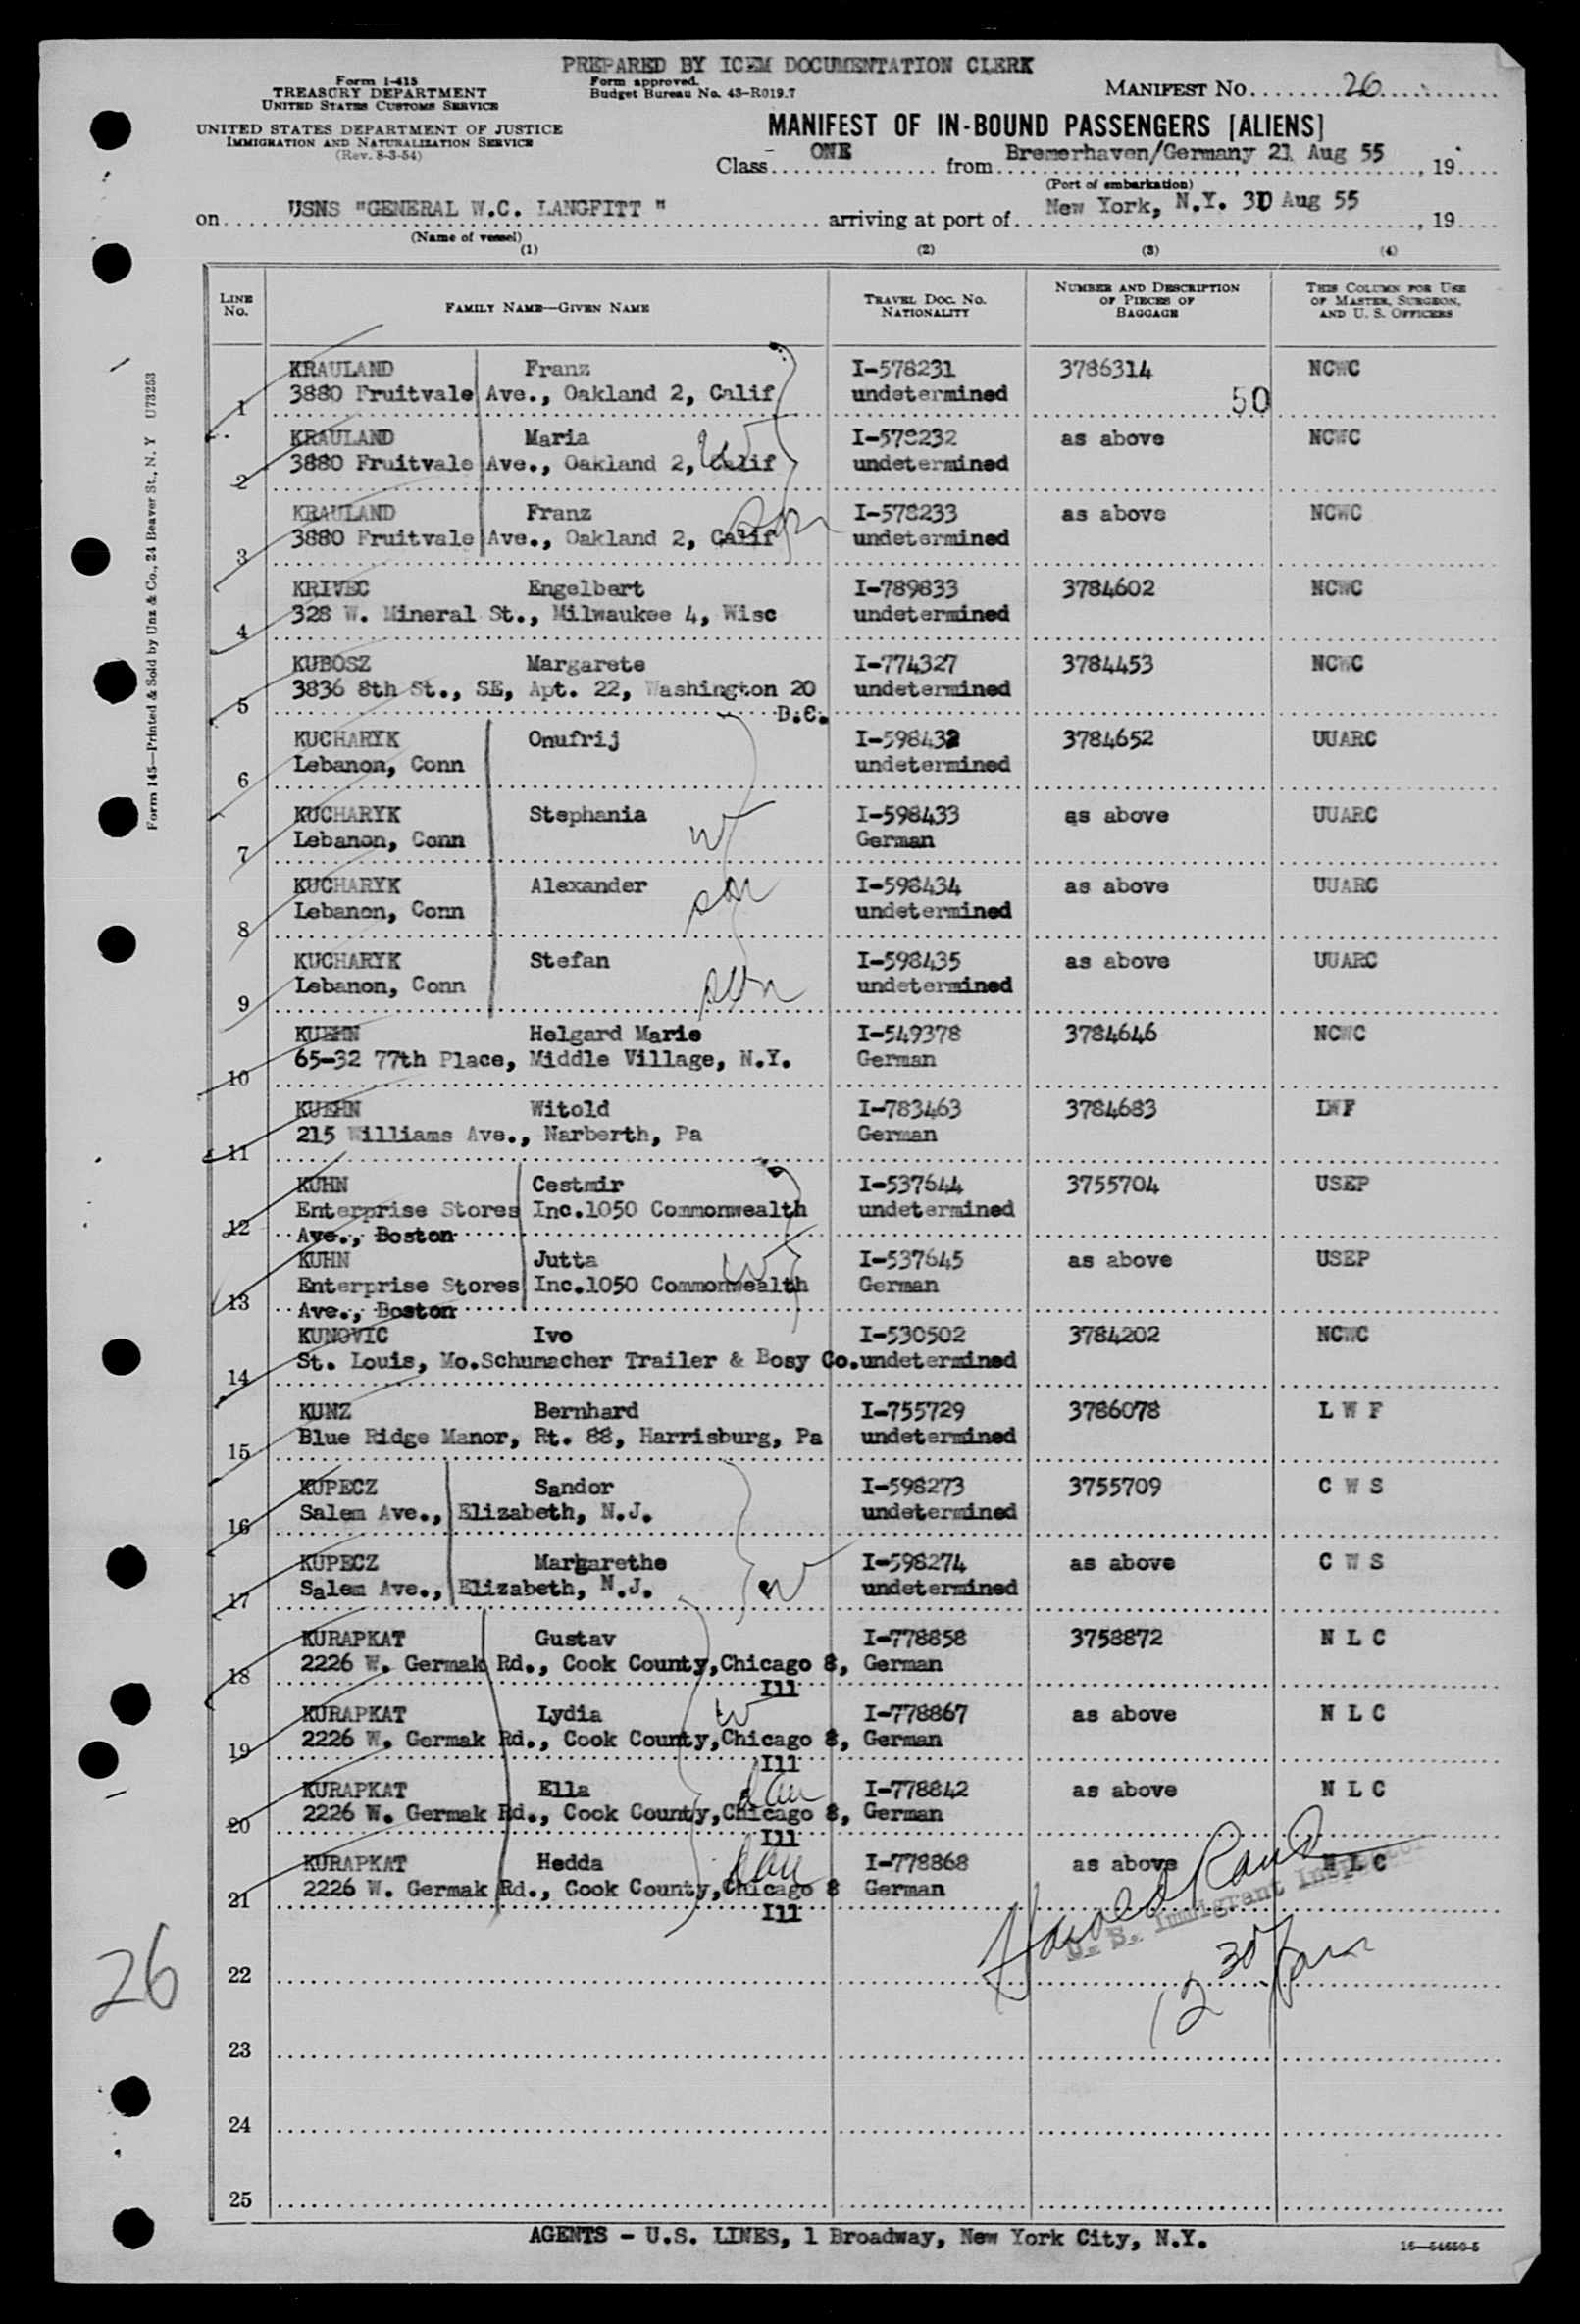 PREPARED BY ICEM DOCUMENTATION CLERK
Form I-415
TREASURY DEPARTMENT
UNITED STATES CUSTOMS SERVICE
Form approved.
Budget Bureau No. 43-R019.7
MANIFEST NO. 26
UNITED STATES DEPARTMENT OF JUSTICE
IMMIGRATION AND NATURALIZATION SERVICE
(Rev. 8-3-54)
MANIFEST OF IN-BOUND PASSENGERS [ALIENS]
Class ONE from Bremerhaven/Germany 21 Aug 55, 19
(Port of embarkation)
on USNS "GENERAL W.C. LANGFITT " arriving at port of New York, N.Y. 30 Aug 55, 19
(Name of vessel)
(1) (2) (3) (4)
LINE NO. FAMILY NAME—GIVEN NAME TRAVEL DOC. NO. NATIONALITY NUMBER AND DESCRIPTION OF PIECES OF BAGGAGE THIS COLUMN FOR USE OF MASTER, SURGEON, AND U. S. OFFICERS
KRAULAND Franz I-578231 3786314 NCWC
1 3880 Fruitvale Ave., Oakland 2, Calif undetermined 50
KRAULAND Maria W I-578232 as above NCWC
2 3880 Fruitvale Ave., Oakland 2, Calif undetermined
KRAULAND Franz son I-578233 as above NCWC
3 3880 Fruitvale Ave., Oakland 2, Calif undetermined
KRIVEC Engelbert I-789833 3784602 NCWC
4 328 W. Mineral St., Milwaukee 4, Wisc undetermined
KUBOSZ Margarete I-774327 3784453 NCWC
5 3836 8th St., SE, Apt. 22, Washington 20 undetermined
D.C.
KUCHARYK Onufrij I-598432 3784652 UUARC
6 Lebanon, Conn undetermined
KUCHARYK Stephania W I-598433 as above UUARC
7 Lebanon, Conn German
KUCHARYK Alexander son I-598434 as above UUARC
8 Lebanon, Conn undetermined
KUCHARYK Stefan son I-598435 as above UUARC
9 Lebanon, Conn undetermined
KUEHN Helgard Marie I-549378 3784646 NCWC
10 65-32 77th Place, Middle Village, N.Y. German
KUEHN Witold I-783463 3784683 LWF
11 215 Williams Ave., Narberth, Pa German
KUHN Cestmir I-537644 3755704 USEP
12 Enterprise Stores Inc.1050 Commonwealth undetermined
Ave., Boston
KUHN Jutta W I-537645 as above USEP
13 Enterprise Stores Inc.1050 Commonwealth German
Ave., Boston
KUNOVIC Ivo I-530502 3784202 NCWC
14 St. Louis, Mo.Schumacher Trailer & Bosy Co. undetermined
KUNZ Bernhard I-755729 3786078 L W F
15 Blue Ridge Manor, Rt. 88, Harrisburg, Pa undetermined
KUPECZ Sandor I-598273 3755709 C W S
16 Salem Ave., Elizabeth, N.J. undetermined
KUPECZ Margarethe W I-598274 as above C W S
17 Salem Ave., Elizabeth, N.J. undetermined
KURAPKAT Gustav I-778858 3758872 N L C
18 2226 W. Germak Rd., Cook County,Chicago 8, German
Ill
KURAPKAT Lydia W I-778867 as above N L C
19 2226 W. Germak Rd., Cook County,Chicago 8, German
Ill
KURAPKAT Ella dau I-778842 as above N L C
20 2226 W. Germak Rd., Cook County,Chicago 8, German
Ill
KURAPKAT Hedda dau I-778868 as above N L C
21 2226 W. Germak Rd., Cook County,Chicago 8 German
Ill
Harold
U. S. Immigrant Inspector
22
12 30
23
24
25
26
AGENTS - U.S. LINES, 1 Broadway, New York City, N.Y.
16—54650-5
Form 145—Printed & Sold by Unz & Co., 24 Beaver St., N. Y U73253